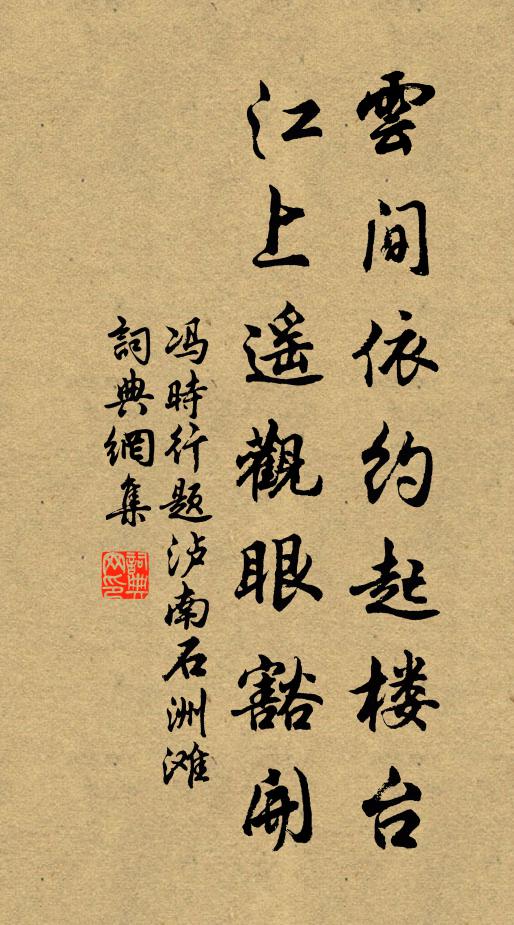 雲间依约起楼台
江上遥觀眼豁開
冯時行题泸南石洲滩
詞典網集
詞典网印